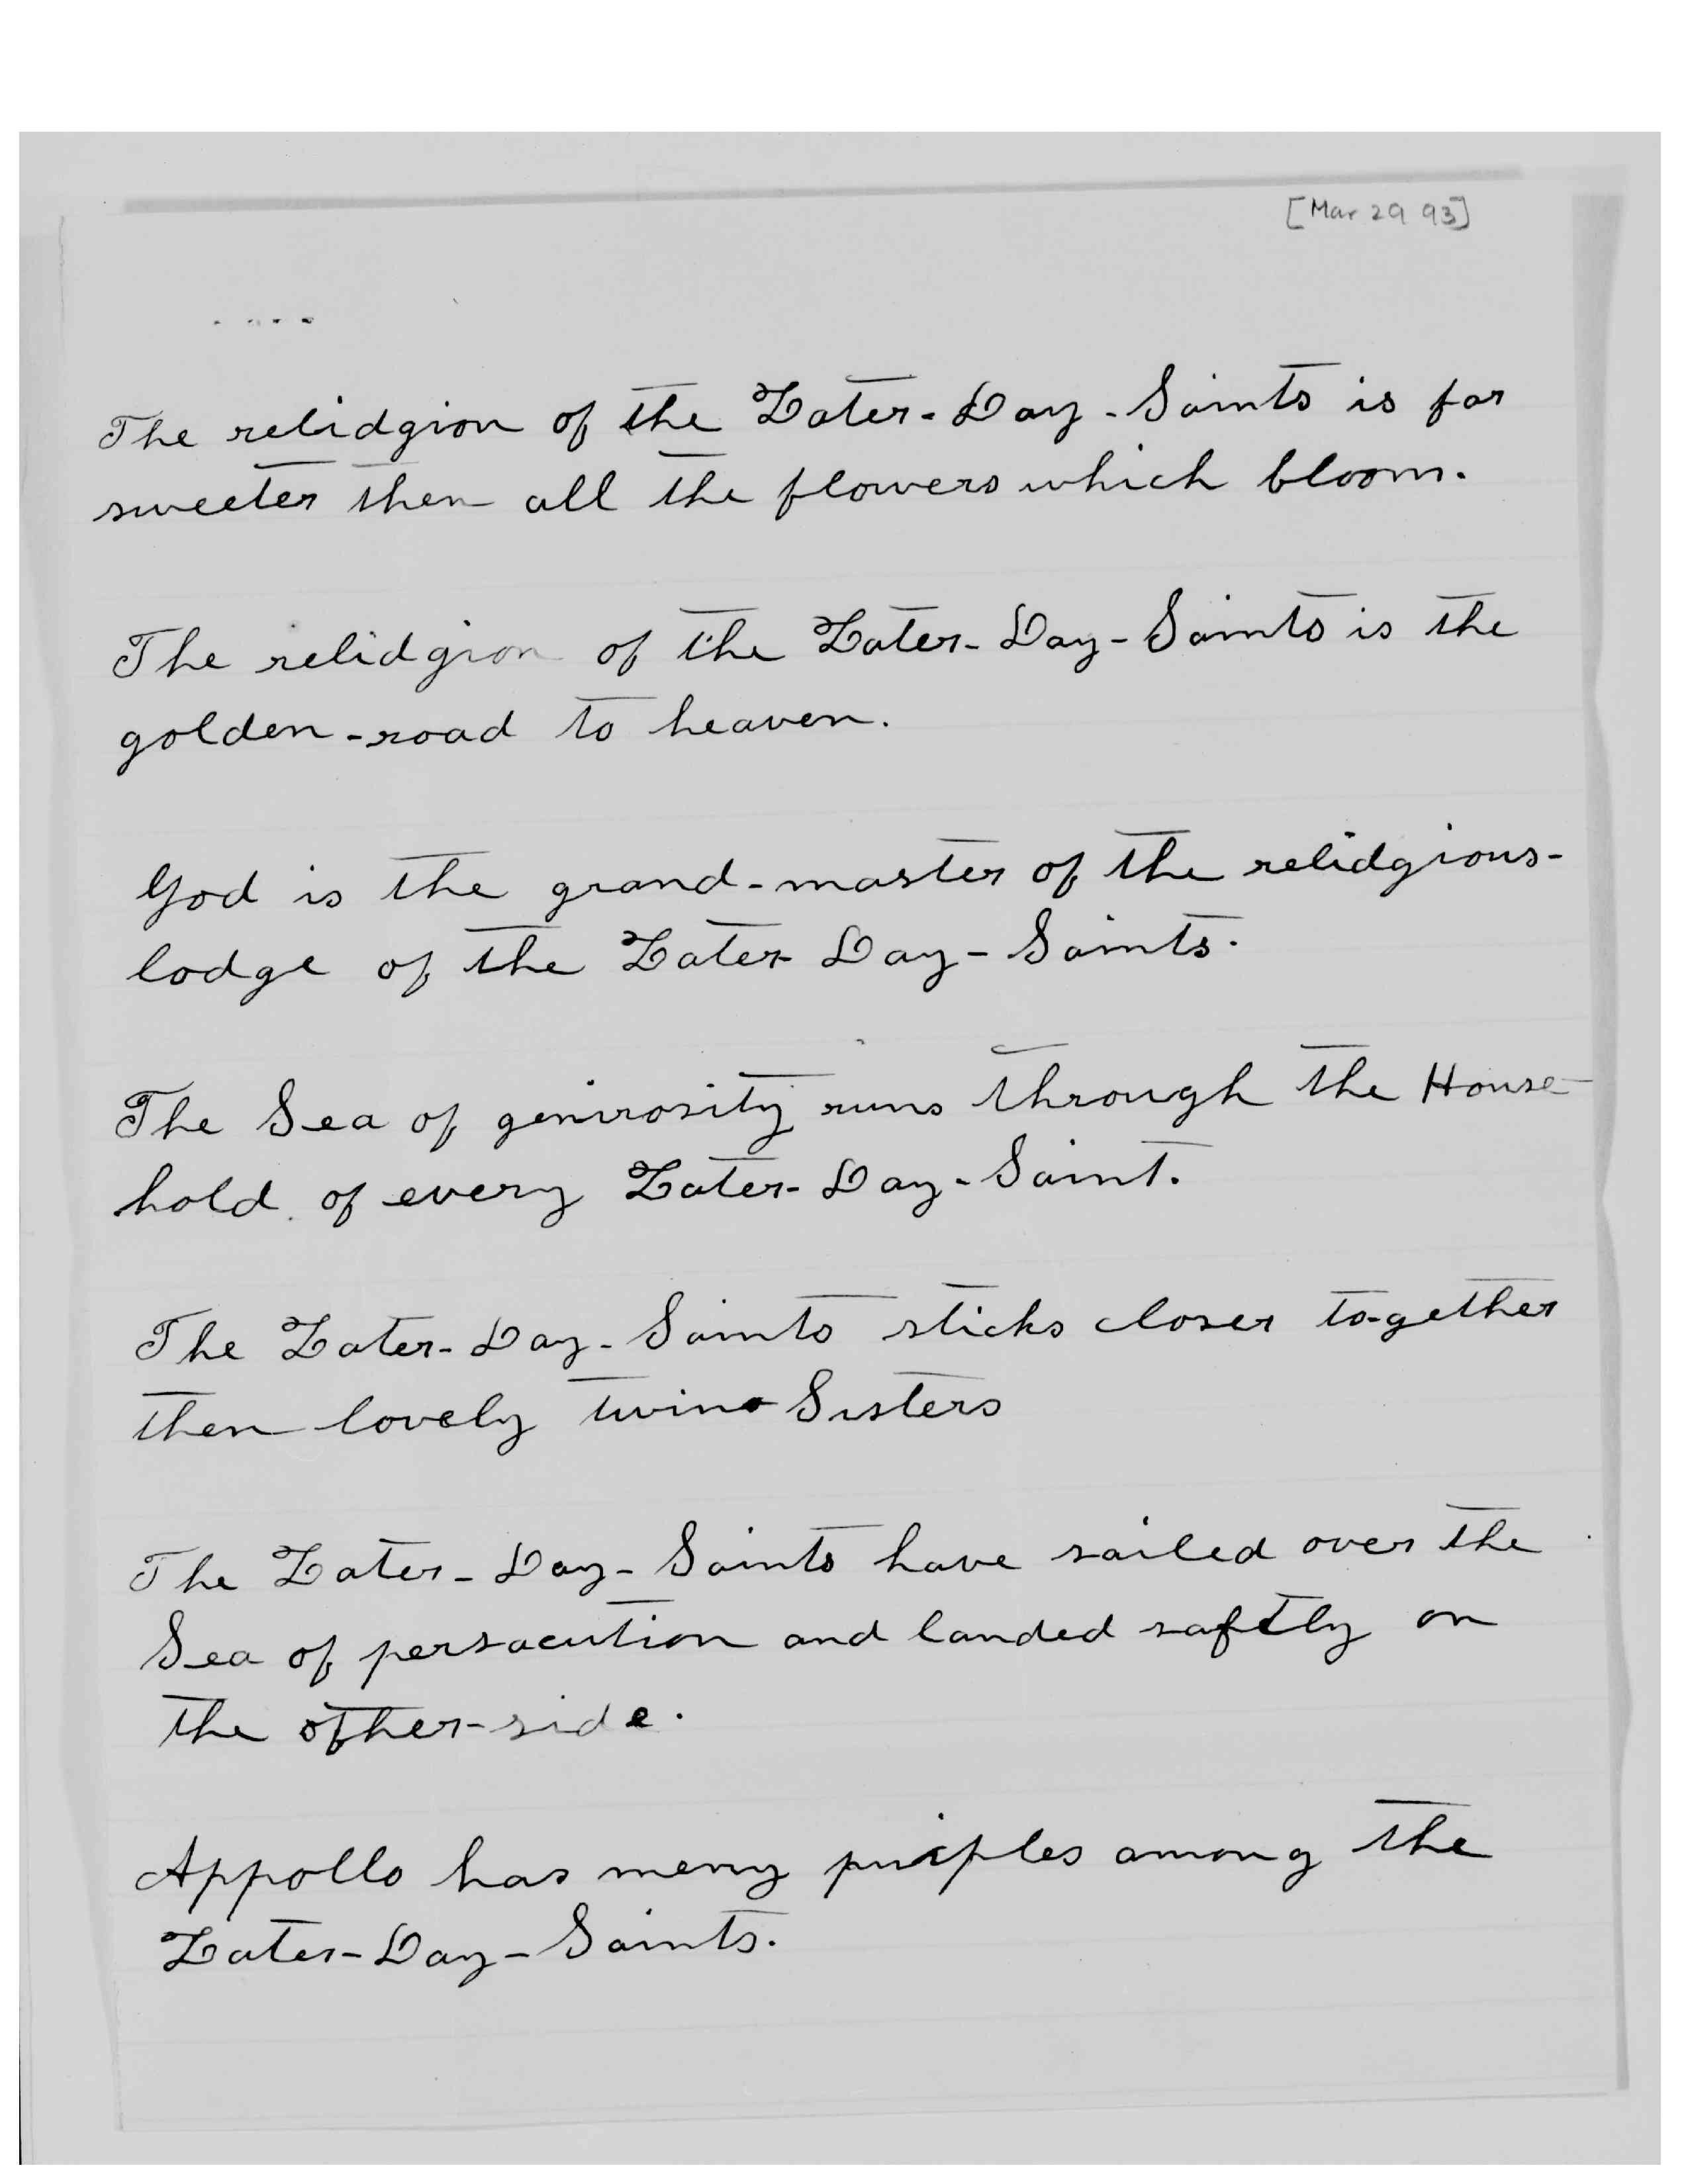 [Mar 29 93]
The relidgion of the Later-Day-Saints is far
sweeter then all the flowers which bloom.
The relidgion of the Later-Day-Saints is the
golden-road to heaven.
God is the grand-master of the relidgious-
lodge of the Later-Day-Saints.
The Sea of genirosity runs through the House-
hold of every Later-Day-Saint.
The Later-Day-Saints sticks closer to-gether
then lovely twins Sisters
The Later-Day-Saints have sailed over the
Sea of persacution and landed saftly on
the other-side.
Appollo has meny puiples among the
Later-Day-Saints.